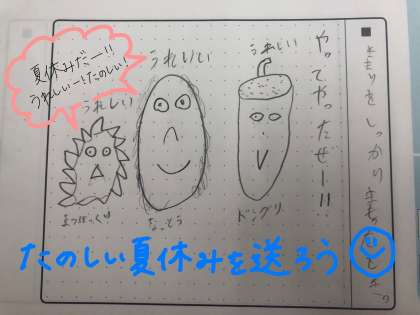 きまりをしっかり
やってやったぜー!!
うれしい
うれしい
夏休みだー!!
うれしいー!たのしい!
うれしい
ドングリ
なっとう
まつぼっくり
たのしい夏休みを送ろう